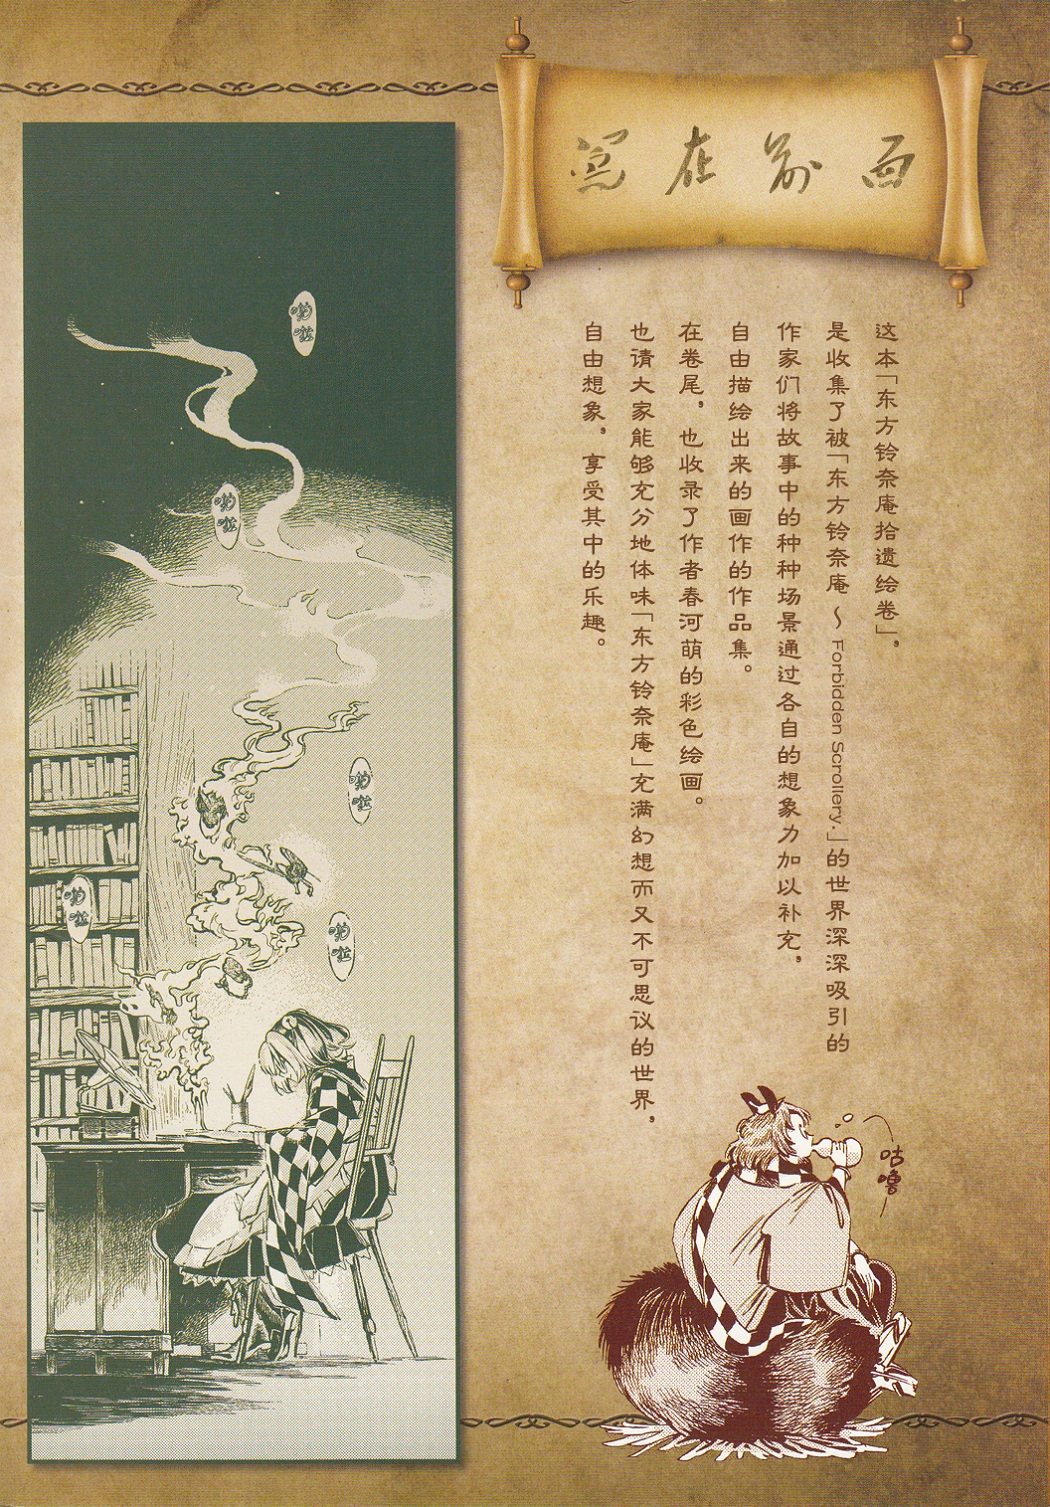 写在前面
这本「东方铃奈庵拾遗绘卷」，
是收集了被「东方铃奈庵～Forbidden Scrollery.」的世界深深吸引的
作家们将故事中的种种场景通过各自的想象力加以补充，
自由描绘出来的画作的作品集。
在卷尾，也收录了作者春河萌的彩色绘画。
也请大家能够充分地体味「东方铃奈庵」充满幻想而又不可思议的世界，
自由想象，享受其中的乐趣。
咕噜
哟啦
哟啦
哟啦
哟啦
哟啦